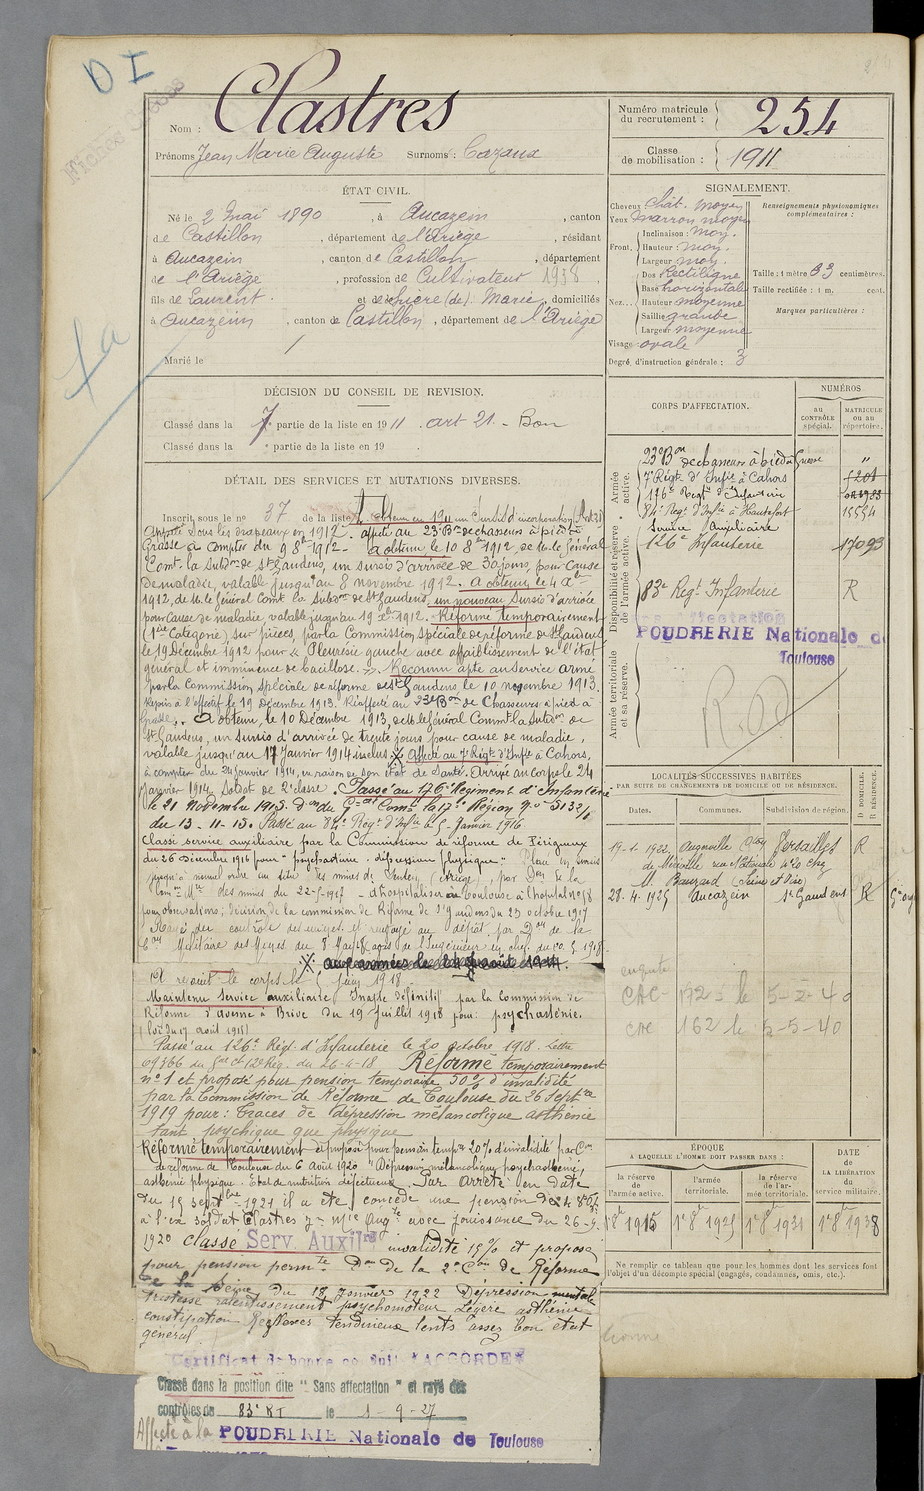 D I
Fiches
Clastres
Nom :
Prénoms Jean Marie Auguste Surnoms : Cazaux
ÉTAT CIVIL.
Né le 2 Mai 1890, à Aucazein, canton
de Castillon, département de l'Ariège, résidant
à Aucazein, canton de Castillon, département
de l'Ariège, profession de Cultivateur 1938
fils de Laurent et de (de) Marie, domiciliés
à Aucazein, canton de Castillon, département de l'Ariège
Marié le
DÉCISION DU CONSEIL DE REVISION.
Classé dans la 7e partie de la liste en 1911. art 21. - Bon
Classé dans la partie de la liste en 19 .
DÉTAIL DES SERVICES ET MUTATIONS DIVERSES.
Inscrit sous le no 37 de la liste a obtenu en 1911 un Sursis d'incorporation (Art 21)
Appelé sous les drapeaux en 1912. affecté au 23e Bon de chasseurs à pied à
Grasse à compter du 9 8bre 1912. - a obtenu le 10 8bre 1912, de M. le Général
Comt la Subdon de St Gaudens, un sursis d'arrivée de 30 jours, pour cause
de maladie, valable jusqu'au 8 novembre 1912. a obtenu le 4
1912, de M. le Général Comt la Subdon de St Gaudens, un nouveau Sursis d'arrivée
pour cause de maladie, valable jusqu'au 19 1912. - Réformé temporairement
(1ère Catégorie) sur pièces, par la Commission spéciale de réforme de St Gaudens
le 19 Décembre 1912 pour « Pleurésie gauche avec affaiblissement de l'état
général et imminence de bacillose. ». Reconnu apte au service armé
par la Commission spéciale de réforme de St Gaudens le 10 novembre 1913.
Repris à l'effectif le 19 Décembre 1913. Réaffecté au 23e Bon de Chasseurs à pied à
Grasse. A obtenu, le 10 Décembre 1913, de M. le Général Commt la Subdon de
St Gaudens, un sursis d'arrivée de trente jours pour cause de maladie,
valable jusqu'au 17 Janvier 1914 inclus. Affecté au 7e Régt d'Infie à Cahors,
à compter du 24 Janvier 1914, en raison de son état de Santé. Arrivé au corps le 24
Janvier 1914. Soldat de 2e classe. Passé au 176e Régiment d'Infanterie
le 21 Novembre 1915. Don du Gal Comt la 17e Région no 5132/1
du 13-11-15. Passé au 84e Régt d'Infie le 5 Janvier 1916
Classé service auxiliaire par la Commission de réforme de Périgueux
du 26 Décembre 1916 pour "psychasténie, dépression physique". Placé en sursis
jusqu'à nouvel ordre au titre des mines de Sentein (Ariège), par Don de la
des mines du 22-5-1917 - d'Hospitaliser à Toulouse à l'hôpital no 18
pour observations, décision de la commission de Réforme de St Gaudens du 23 octobre 1917
Rayé du contrôle des usages et renvoyé au dépôt par Don de la
Militaire des Mines du 8 Mai
aux armées le août 1914.
A rejoint le corps le 5 juin 1918
Maintenu Service auxiliaire Inapte définitif par la Commission de
Réforme d'Asnne à Brive du 19 Juillet 1918 pour : psychasténie.
(loi du 17 août 1915)
Passé au 126e Régt d'Infanterie le 20 octobre 1918. Lettre
69366 du Gal Ct 12e Rég. du 26-4-18 Réformé temporairement
no 1 et proposé pour pension temporaire 50% d'invalidité
par la Commission de Réforme de Toulouse du 26 Septbre
1919 pour : Traces de dépression mélancolique asthénie
tant psychique que physique
Réformé temporairement et proposé pour pension tempre 20% d'invalidité par Con
de réforme de Toulouse du 6 août 1920 "Dépression mélancolique psychasthénie,
asthénie physique. Etat de nutrition défectueux. Par Arrêté en date
du 15 septbre 1921 il a été concédé une pension de
à l'ex soldat Clastres J- Mie Augte avec jouissance du 26-9-
1920 classé Serv. Auxilre invalidité 15% et proposé
pour pension permte Don de la 2e Con de Réforme
de la Seine du 18 Janvier 1922 Dépression mentale
tristesse ralentissement psychomoteur Légère asthénie
constipation Réflexes tendineux lents assez bon état
général
Certificat de bonne conduite "ACCORDÉ"
Classé dans la position dite "Sans affectation" et rayé des
contrôles du 83e RI le 1-9-27
Affecté à la POUDRERIE Nationale de Toulouse
Numéro matricule du recrutement : 254
Classe de mobilisation : 1911
SIGNALEMENT.
Cheveux Chât. moyen
Yeux marron moyen
Front. Inclinaison : moy.
Hauteur : moy.
Largeur moy.
Nez... Dos rectiligne
Base horizontale
Hauteur moyenne
Saillie grande
Largeur moyenne
Visage : ovale
Degré d'instruction générale : 3
Renseignements physionomiques complémentaires :
Taille : 1 mètre 63 centimètres.
Taille rectifiée : 1 m. cent.
Marques particulières :
CORPS D'AFFECTATION.
NUMÉROS
AU CONTRÔLE spécial.
MATRICULE ou au répertoire.
Armée active.
23e Bon de chasseurs à pied à Grasse "
7e Régt d'Infie à Cahors
176e Régt d'Infanterie
84e Régt d'Infie 15554
Service Auxiliaire
Disponibilité et réserve de l'armée active.
126e Infanterie 17093
83e Régt Infanterie R
Affectation
POUDRERIE Nationale de
Toulouse
Armée territoriale et sa réserve.
LOCALITÉS SUCCESSIVES HABITÉES
PAR SUITE DE CHANGEMENTS DE DOMICILE OU DE RÉSIDENCE.
Dates. Communes. Subdivision de région. D DOMICILE. R RÉSIDENCE.
19-1 1922 Versailles R
de Méréville rue Nationale no 20 chez
M. (Seine et Oise)
28.4.1925 Aucazein St Gaudens R
CAC - 192 - le 5-2-40
CAC 162 le 5-5-40
ÉPOQUE
À LAQUELLE L'HOMME DOIT PASSER DANS :
DATE DE LA LIBÉRATION du service militaire.
la réserve de l'armée active.
l'armée territoriale.
la réserve de l'armée territoriale.
1er 8bre 1915
1er 8bre 1925
1er 8bre 1931
1er 8bre 1938
Ne remplir ce tableau que pour les hommes dont les services font
l'objet d'un décompte spécial (engagés, condamnés, omis, etc.).